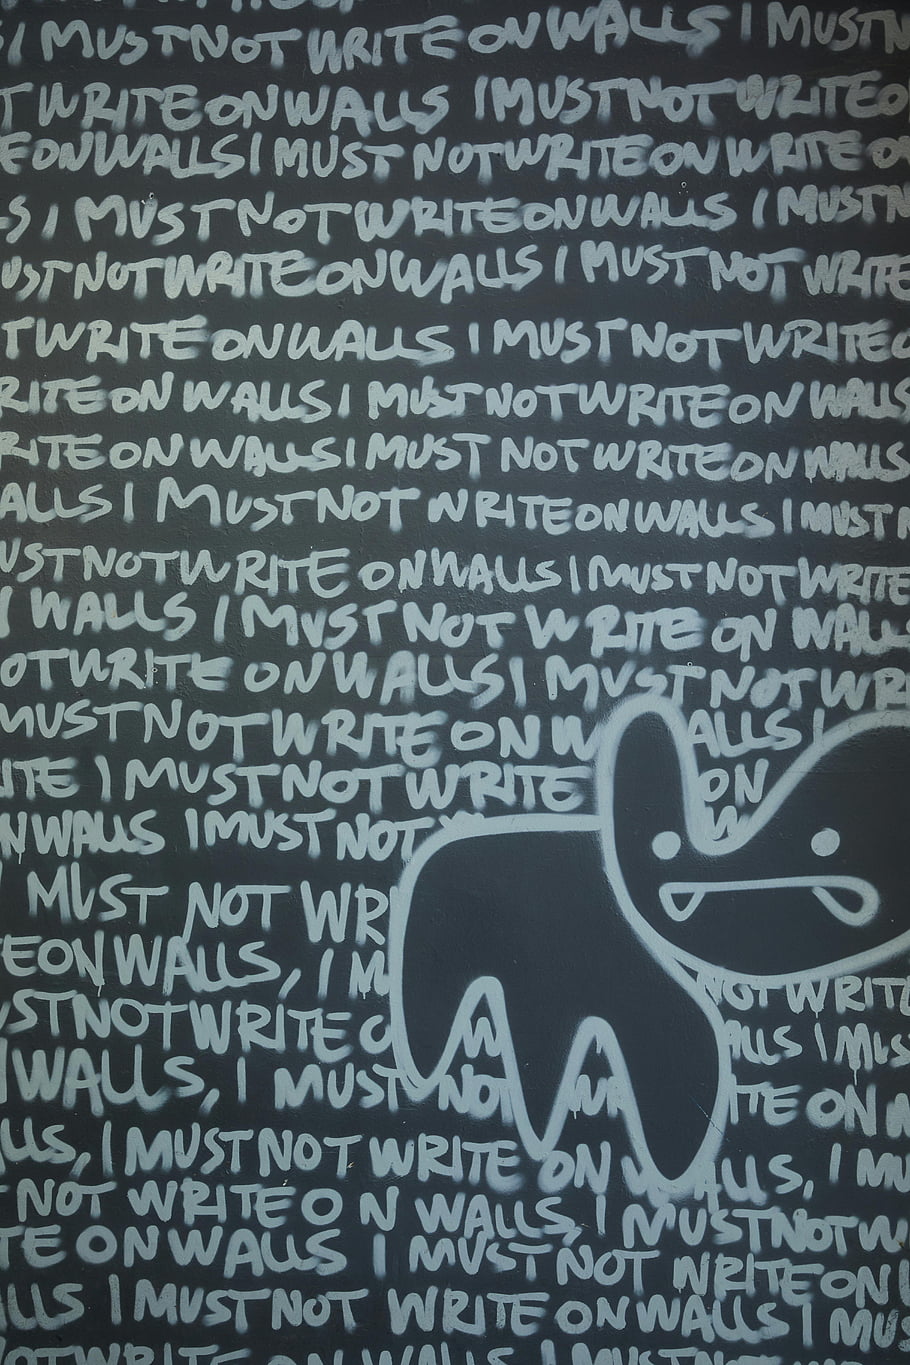 I MUST NOT WRITE ON WALLS I MUST
T WRITE ON WALLS I MUST NOT WRITE O
E ON WALLS I MUST NOT WRITE ON WRITE O
S I MUST NOT WRITE ON WALLS I MUST N
UST NOT WRITE ON WALLS I MUST NOT WRITE
T WRITE ON WALLS I MUST NOT WRITE O
RITE ON WALLS I MUST NOT WRITE ON WALLS
RITE ON WALLS I MUST NOT WRITE ON WALLS
ALLS I MUST NOT WRITE ON WALLS I MUST N
UST NOT WRITE ON WALLS I MUST NOT WRITE
WALLS I MUST NOT WRITE ON WALLS
OT WRITE ON WALLS I MUST NOT WR
MUST NOT WRITE ON W ALLS I
ITE I MUST NOT WRITE ON
N WALLS I MUST NOT W
MUST NOT WRI
E ON WALLS, I M NOT WRITE
UST NOT WRITE O W ALLS I MUS
WALLS, I MUST NOT ITE ON
LLS, I MUST NOT WRITE ON W ALLS, I MU
NOT WRITE ON WALLS, I MUST NOT W
TE ON WALLS I MUST NOT WRITE ON
LLS I MUST NOT WRITE ON WALLS I MUS
OT WRITE ON WALLS I MUST NOT